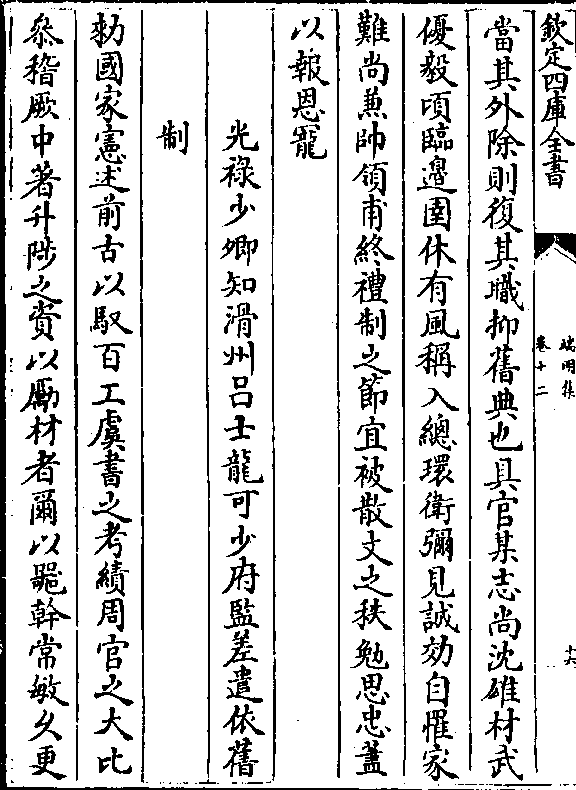 欽定四庫全書
端明集
卷十二
十六
當其外除則復其職抑舊典也具官某志尚沈雄材武
優毅頃臨邊圉休有風稱入總環衛彌見誠効自罹家
難尚兼帥領甫終禮制之節宜被散文之秩勉思忠藎
以報恩寵
光祿少卿知滑州呂士龍可少府監差遣依舊
制
勅國家憲述前古以馭百工虞書之考績周官之大比
叅稽厥中著升陟之資以勵材者爾以器幹常敏久更